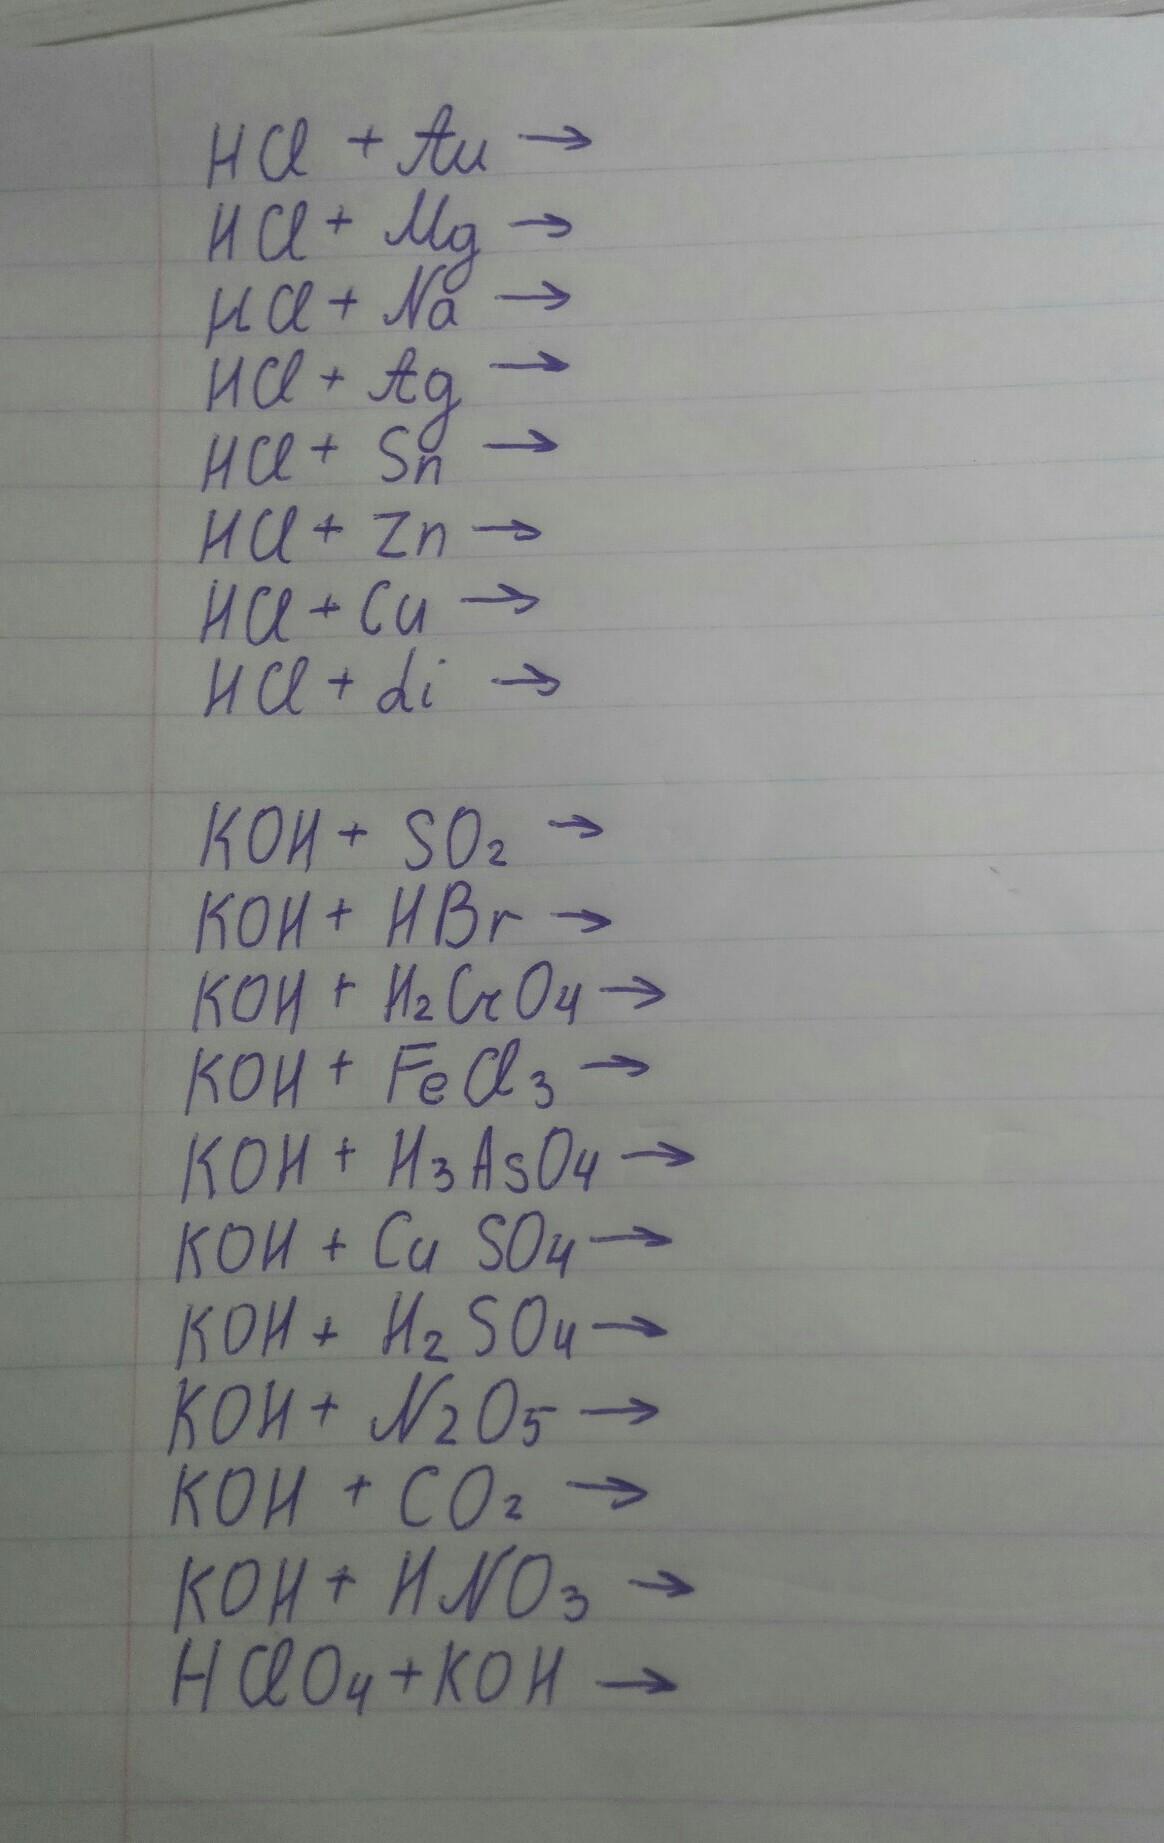 HCl + Au →
HCl + Mg →
HCl + Na →
HCl + Ag →
HCl + Sn →
HCl + Zn →
HCl + Cu →
HCl + Li →
KOH + SO₂ →
KOH + HBr →
KOH + H₂CrO₄ →
KOH + FeCl₃ →
KOH + H₃AsO₄ →
KOH + CuSO₄ →
KOH + H₂SO₄ →
KOH + N₂O₅ →
KOH + CO₂ →
KOH + HNO₃ →
HClO₄ + KOH →